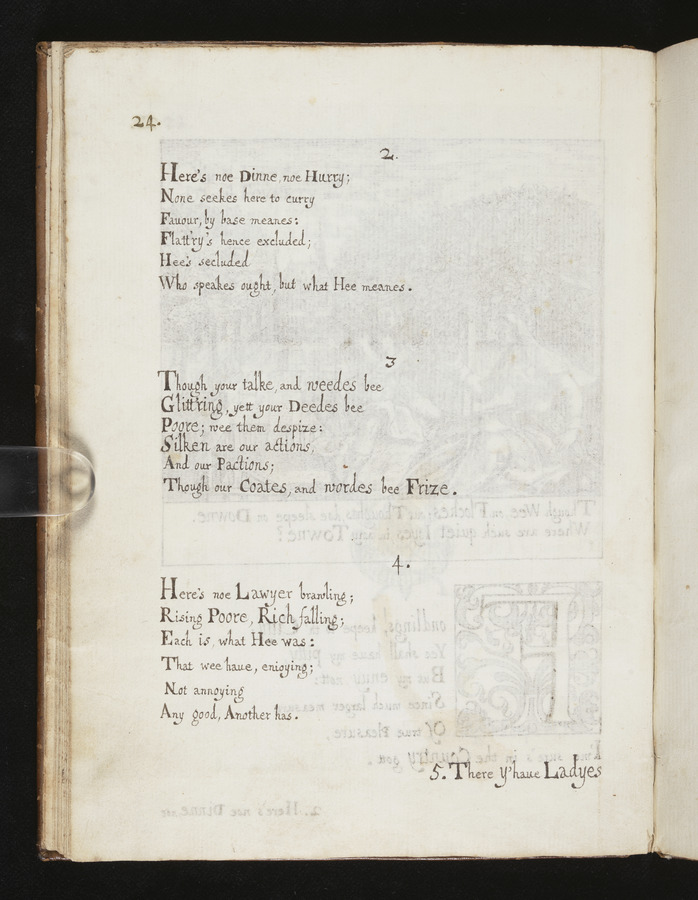 24.
2.
Here's noe Dinne, noe Hurry;
None seekes here to curry
Fauour, by base meanes:
Flatt'ry's hence excluded;
Hee's secluded
Who speakes ought, but what Hee meanes.
3
Though your talke, and weedes bee
Glitt'ring, yett your Deedes bee
Poore; wee them despize:
Silken are our actions,
And our Pactions;
Though our Coates, and wordes bee Frize.
4.
Here's noe Lawyer brawling;
Rising Poore, Rich falling;
Each is, what Hee was:
That wee haue, enioying;
Not annoying
Any good, Another has.
5. There y'haue Ladyes